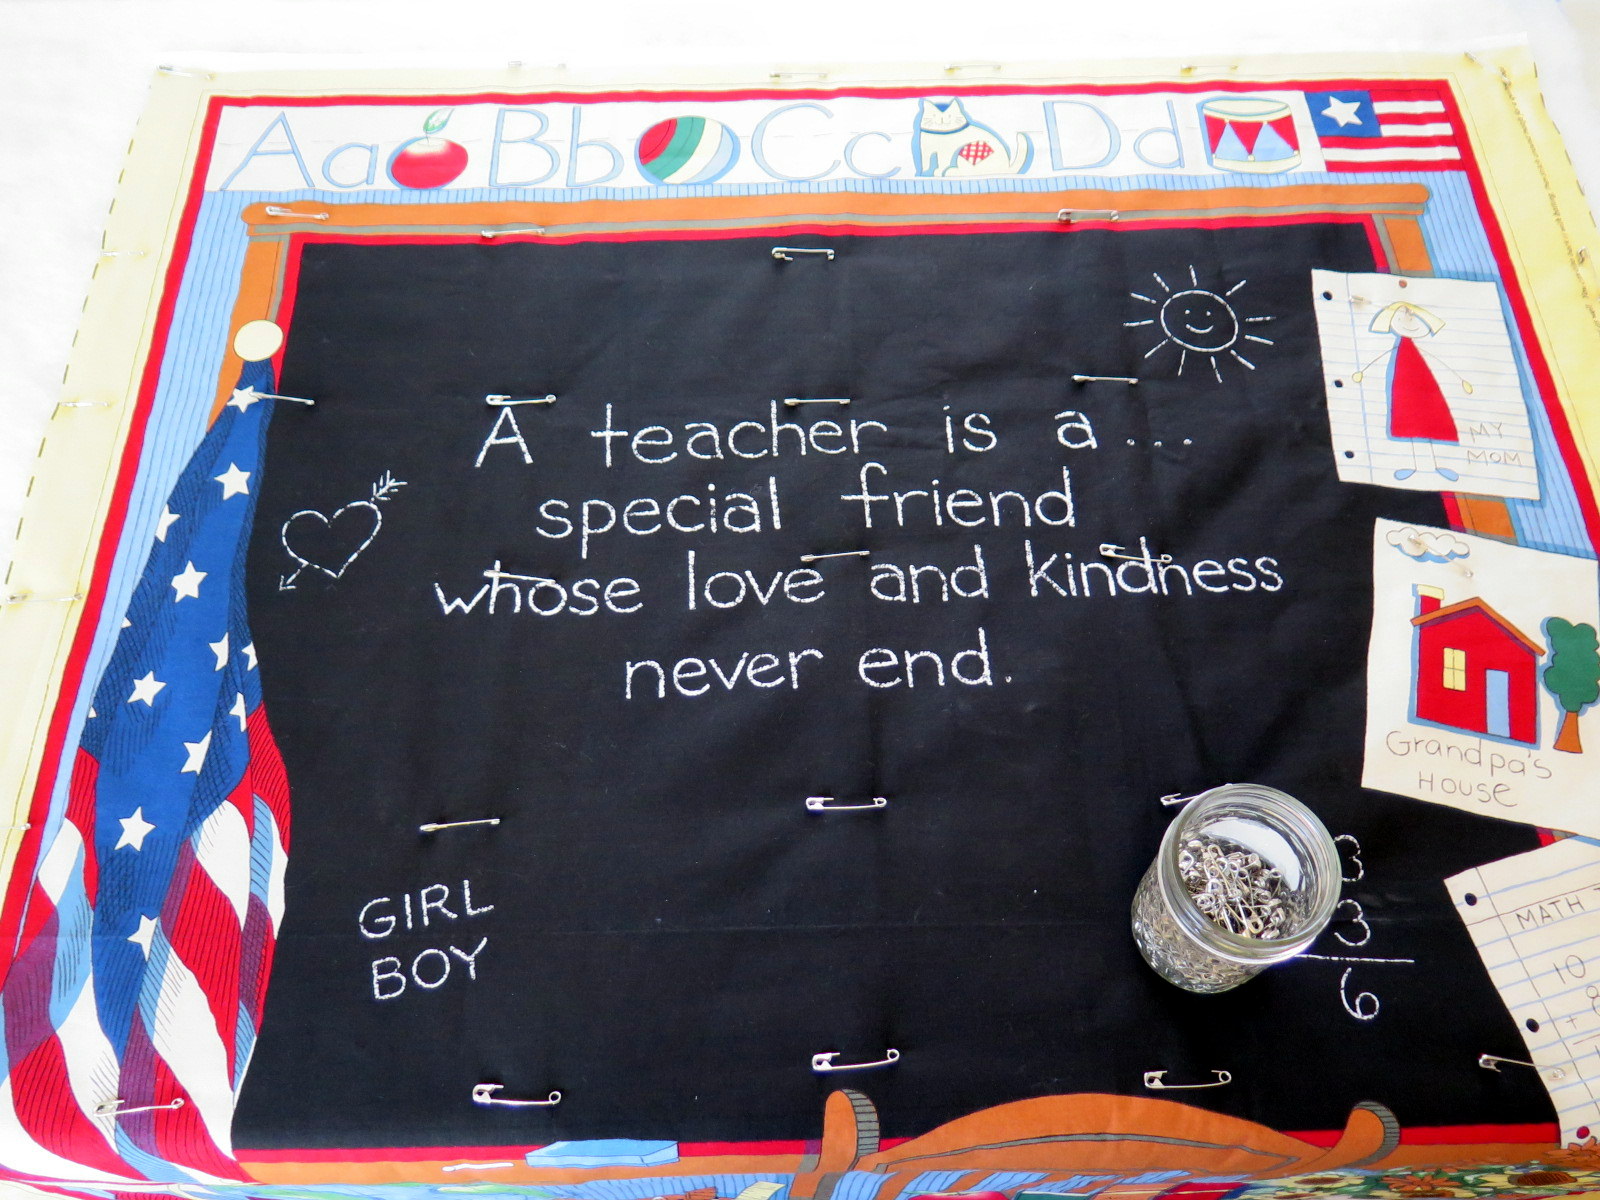 Aa Bb Cc Dd
A teacher is a...
special friend
whose love and kindness
never end.
MY
MOM
Grandpa's
House
GIRL
BOY
3
3
6
MATH
10
+